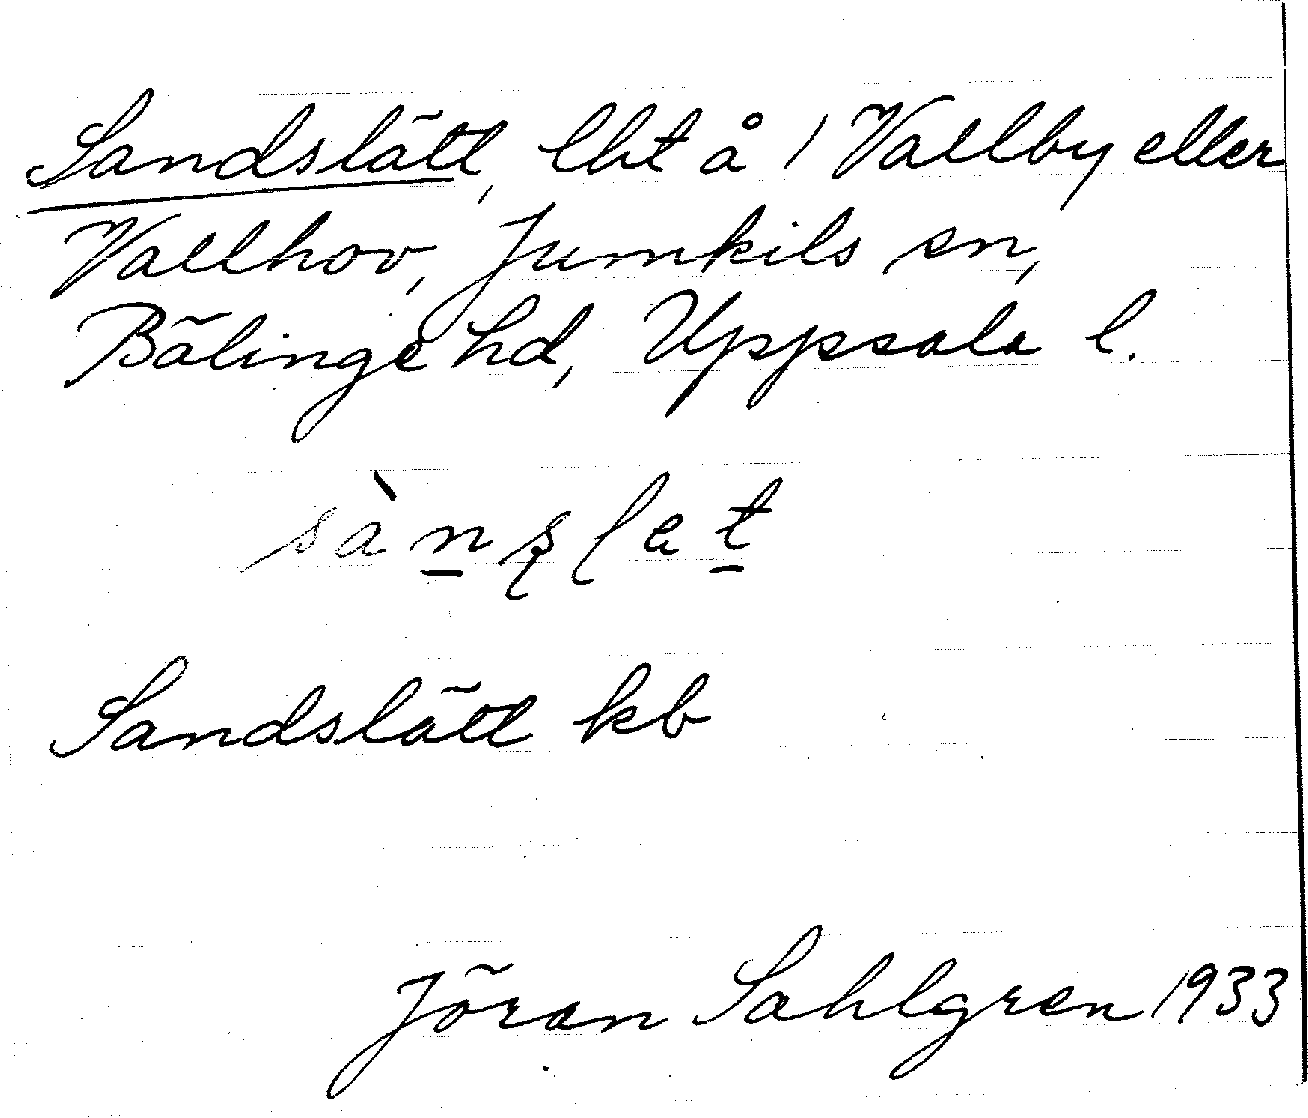 Sandslätt, lht å 1 Vallby eller
Vallhov, Jumkils sn,
Bälinge hd, Uppsala l.
sànslet
Sandslätt kb
Jöran Sahlgren 1933